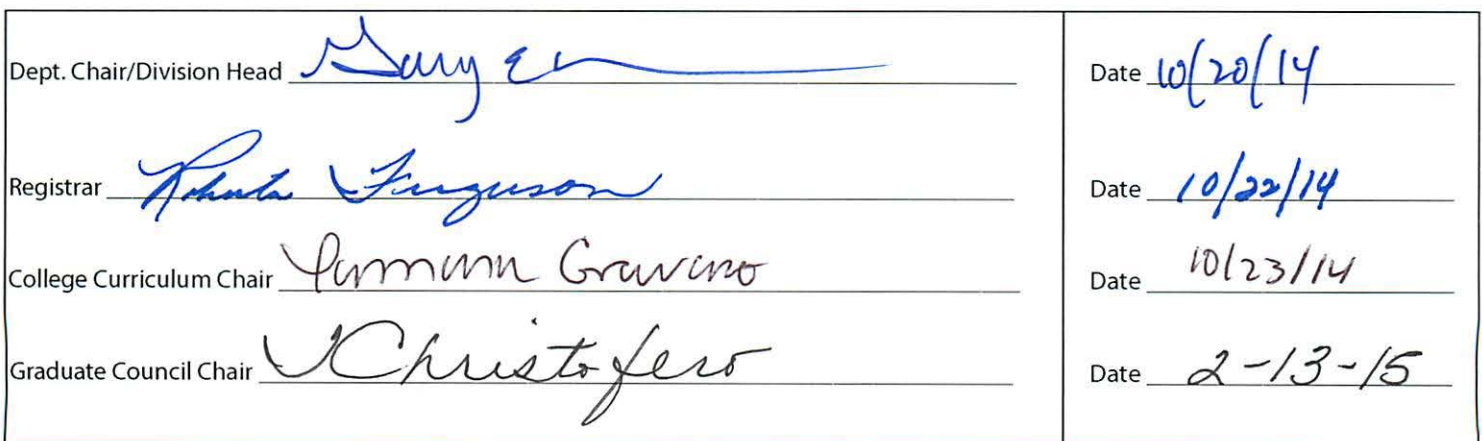 Dept. Chair/Division Head Gary Date 10/20/14
Registrar Roberta Ferguson Date 10/22/14
College Curriculum Chair Date 10/23/14
Graduate Council Chair Christofero Date 2-13-15